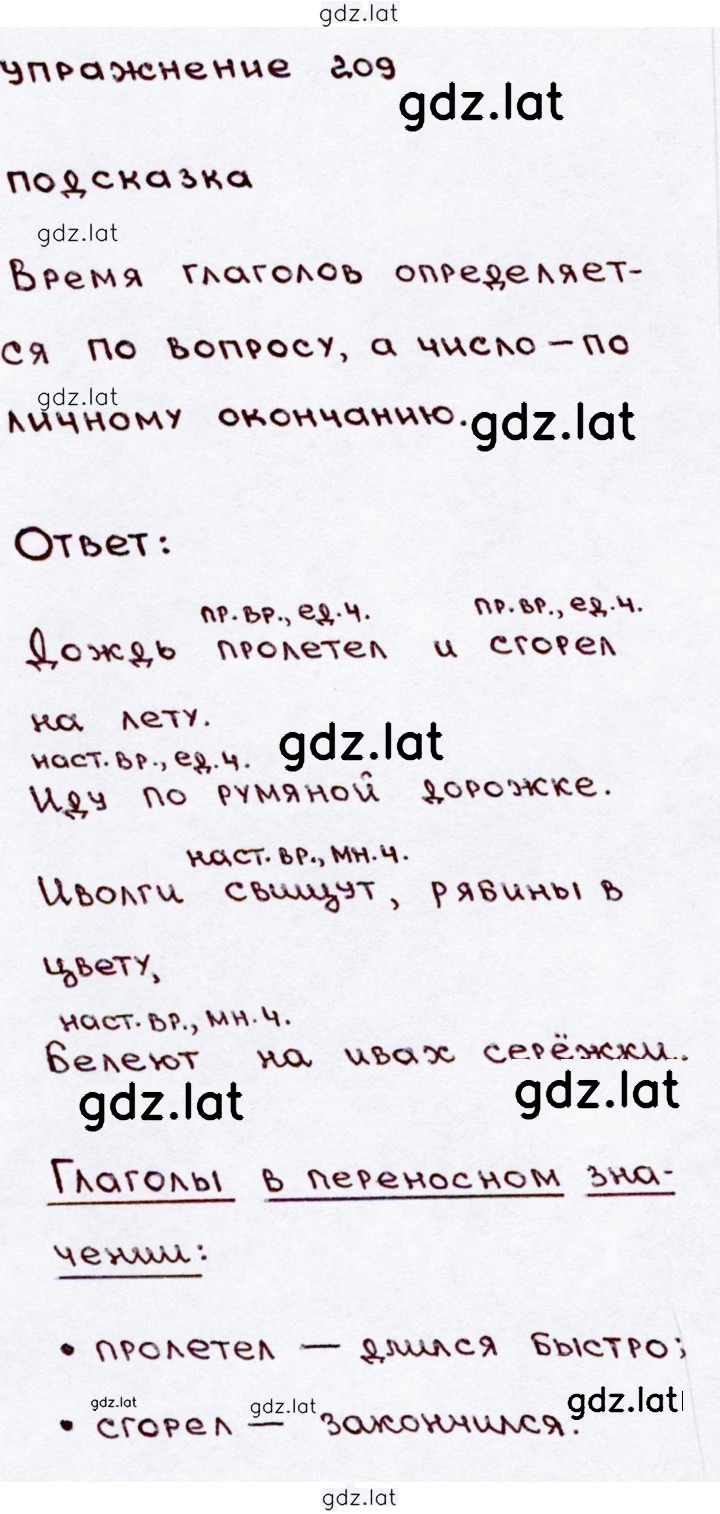 gdz.lat
упражнение 209
gdz.lat
подсказка
gdz.lat
Время глаголов определяет-
ся по вопросу, а число – по
gdz.lat
личному окончанию.
gdz.lat
Ответ:
пр.вр., ед.ч. пр.вр., ед.ч.
Дождь пролетел и сгорел
на лету.
gdz.lat
наст.вр., ед.ч.
Иду по румяной дорожке.
наст.вр., мн.ч.
Иволги свищут, рябины в
цвету,
наст.вр., мн.ч.
Белеют на ивах серёжки.
gdz.lat gdz.lat
Глаголы в переносном зна-
чении:
• пролетел — длился быстро;
gdz.lat gdz.lat gdz.lat
• сгорел — закончился.
gdz.lat